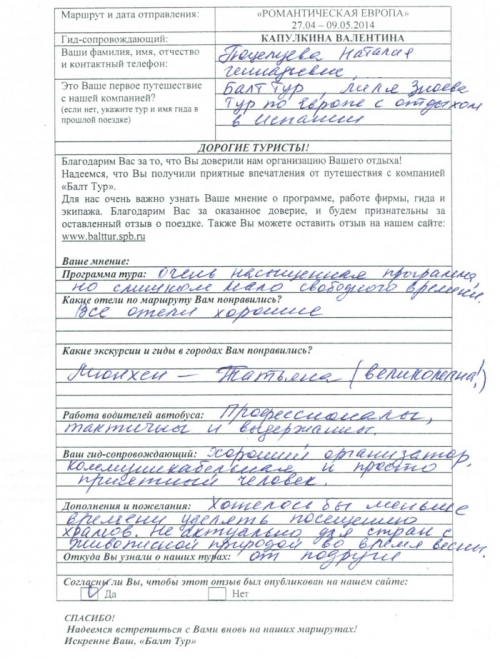 Маршрут и дата отправления: «РОМАНТИЧЕСКАЯ ЕВРОПА»
27.04 – 09.05.2014
Гид-сопровождающий: КАПУЛКИНА ВАЛЕНТИНА
Ваши фамилия, имя, отчество Поцелуева Наталия
и контактный телефон: геннадиевна
Это Ваше первое путешествие Балт Тур, Лиля Зноева
с нашей компанией? Тур по Европе с отдыхом
(если нет, укажите тур и имя гида в в Испании
прошлой поездке)
ДОРОГИЕ ТУРИСТЫ!
Благодарим Вас за то, что Вы доверили нам организацию Вашего отдыха!
Надеемся, что Вы получили приятные впечатления от путешествия с компанией
«Балт Тур».
Для нас очень важно узнать Ваше мнение о программе, работе фирмы, гида и
экипажа. Благодарим Вас за оказанное доверие, и будем признательны за
оставленный отзыв о поездке. Также Вы можете оставить отзыв на нашем сайте:
www.balttur.spb.ru
Ваше мнение:
Программа тура: очень насыщенная программа,
но слишком мало свободного времени.
Какие отели по маршруту Вам понравились?
Все отели хорошие
Какие экскурсии и гиды в городах Вам понравились?
Мюнхен – Татьяна (великолепна!)
Работа водителей автобуса: Профессионалы,
тактичны и выдержаны.
Ваш гид-сопровождающий: хороший организатор,
коммуникабельная и просто
приятный человек.
Дополнения и пожелания: Хотелось бы меньше
времени уделять посещению
храмов. Не актуально для стран с
живописной природой во время весны.
Откуда Вы узнали о наших турах: от подруги
Согласны ли Вы, чтобы этот отзыв был опубликован на нашем сайте:
Да Нет
СПАСИБО!
Надеемся встретиться с Вами вновь на наших маршрутах!
Искренне Ваш, «Балт Тур»